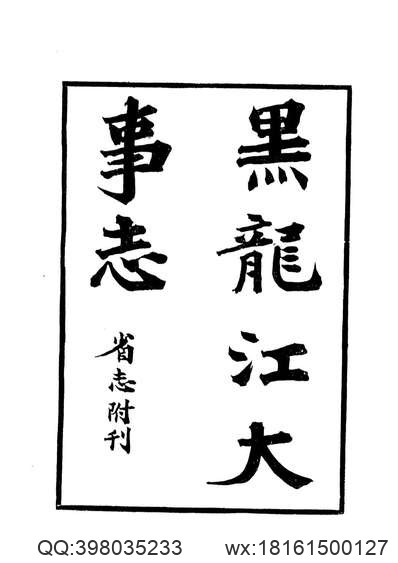 黑龍江大
事志
省志附刊
QQ:398035233 wx:18161500127